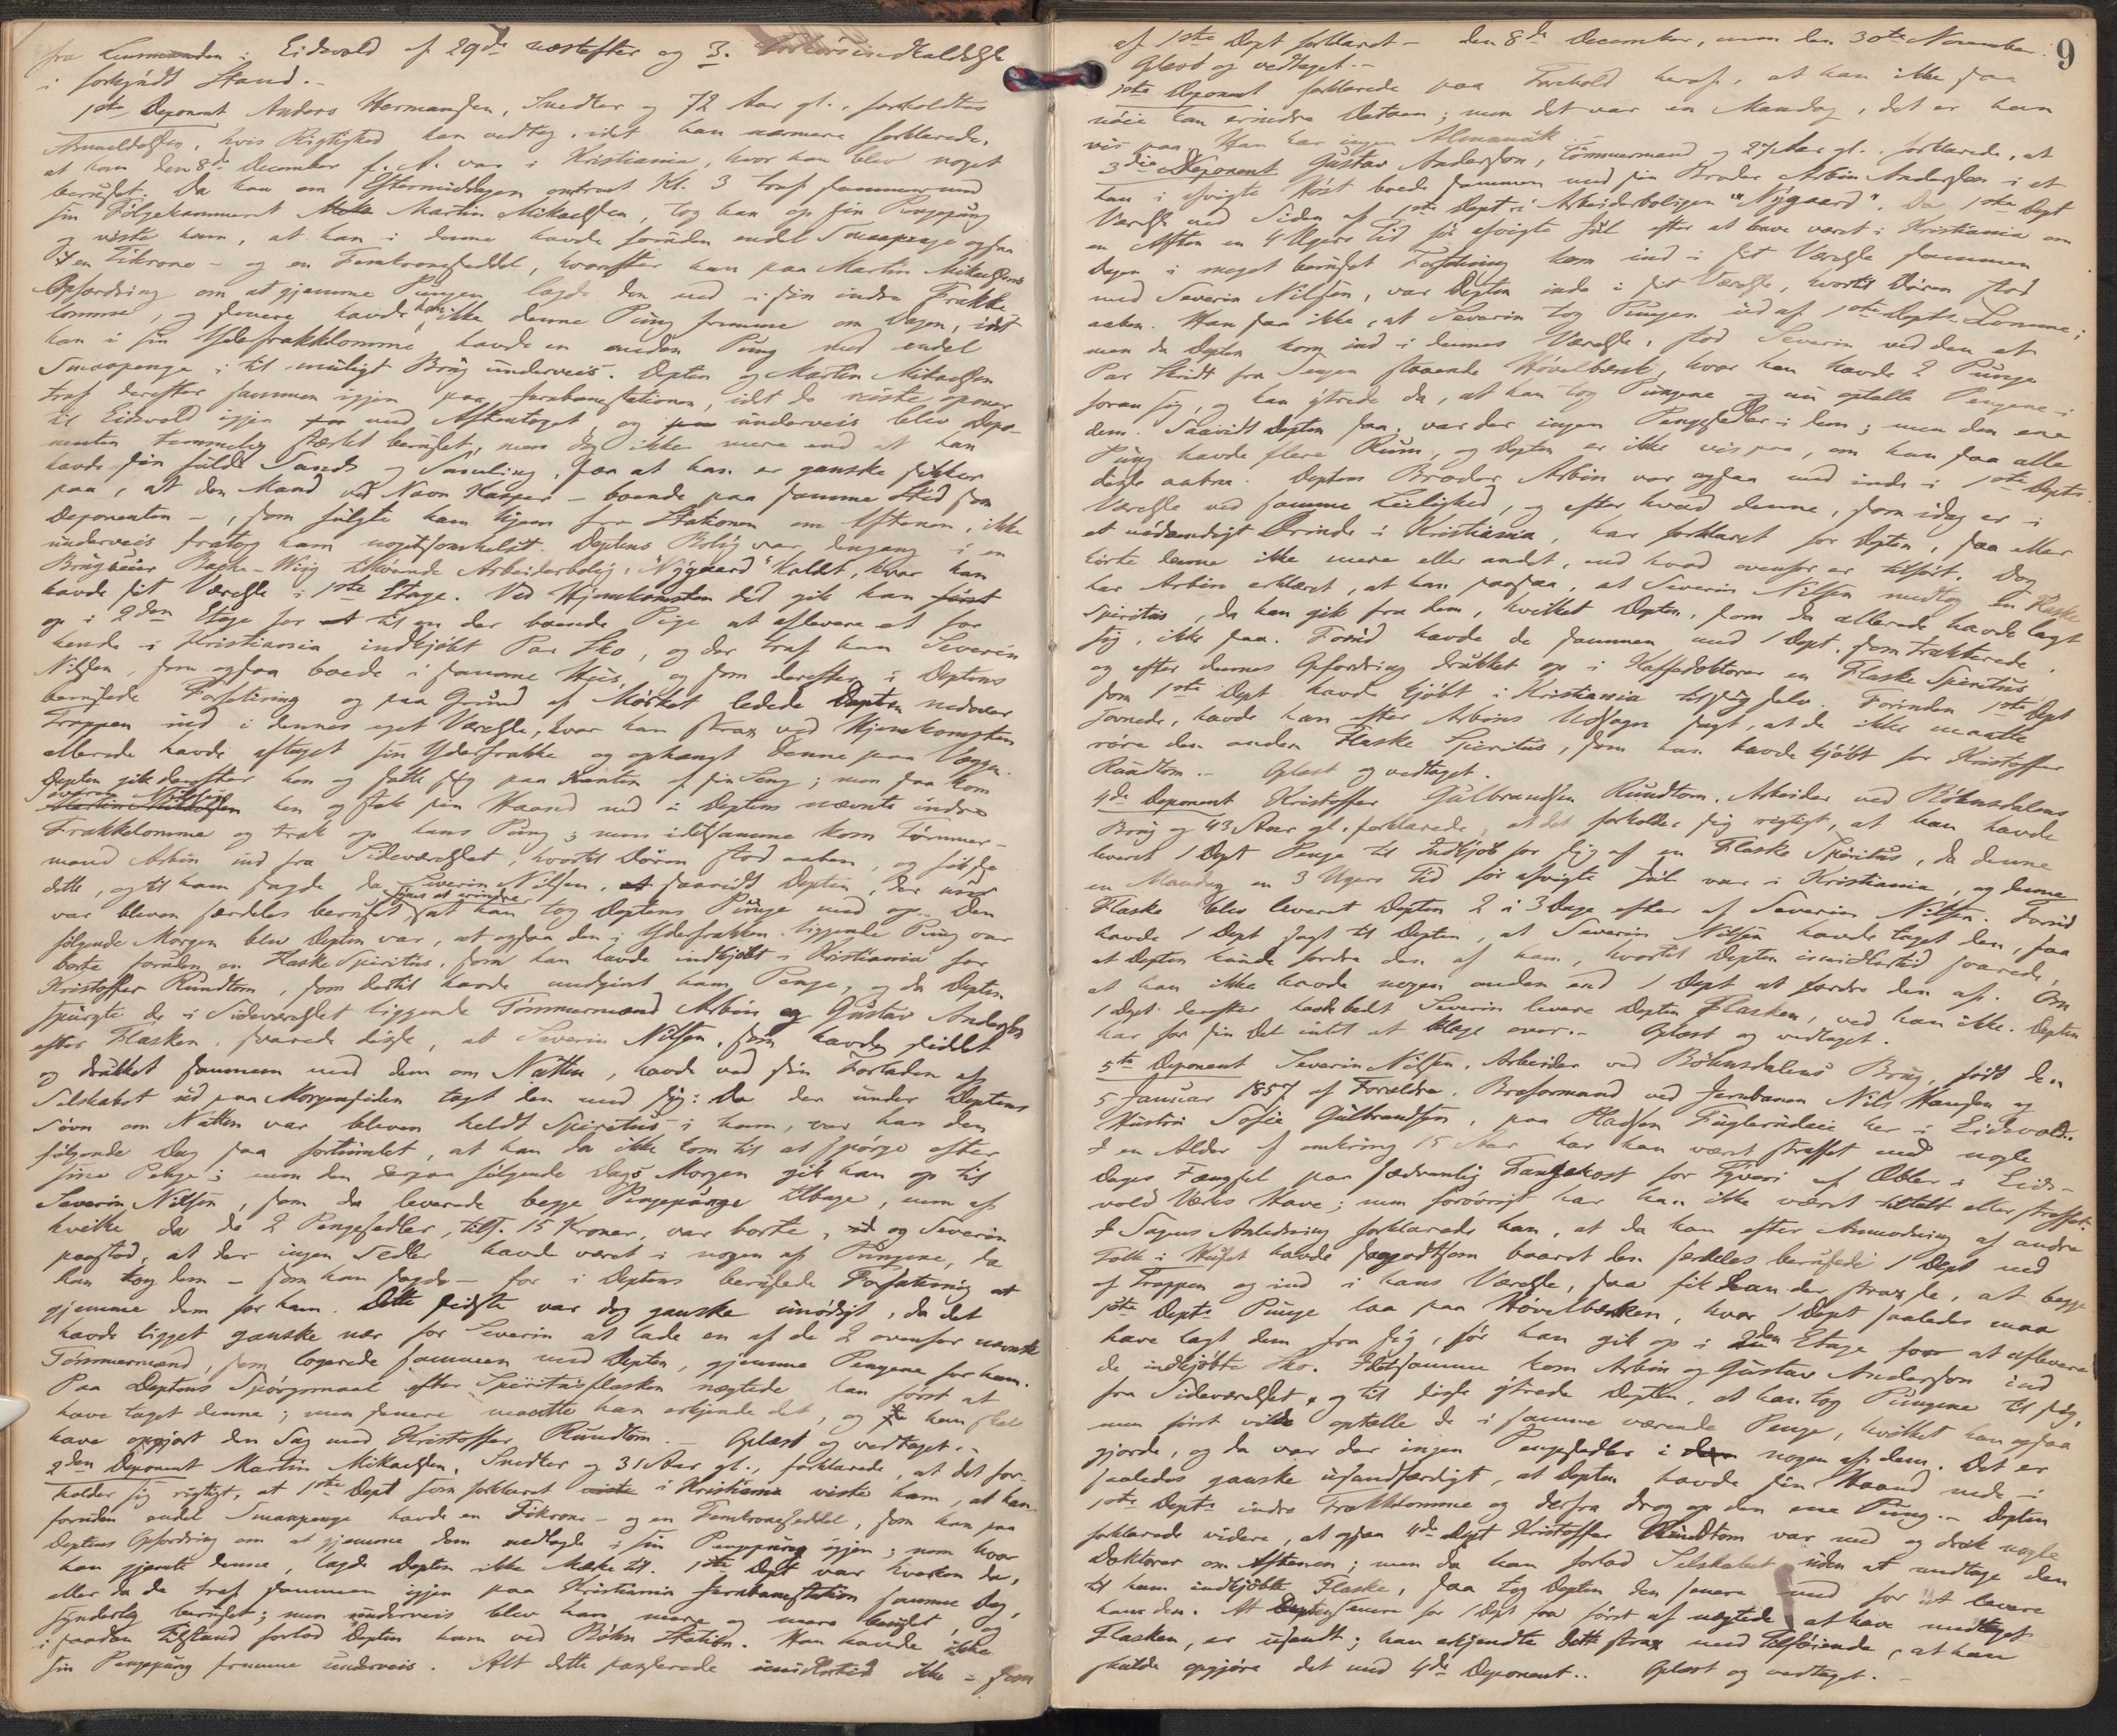 fra Lensmanden i Eidsvold af 29de næstefter og 3. Forhørsindkaldelse
i forkyndt Stand. -
1ste Deponent Anders Hermansen, Snedker og 72 Aar gl., forholdtes
Anmeldelsen, hvis Rigtighed han vedtog, idet han nærmere forklarede,
at han den 8de December f. A. var i Kristiania, hvor han blev noget
beruset. Da han om Eftermiddagen omtrent Kl. 3 traf sammen med
sin Følgekammerat Martin Mikaelsen, tog han op sin Pengepung
og viste ham, at han i denne havde foruden endel Smaapenge ogsaa
en Tikrone- og en Femkroneseddel, hvorefter han paa Martin Mikaelsens
Opfordring om at gjemme Pungen lagde den ned i sin indre Frakke-
lomme, og senere havde han ikke denne Pung fremme om Dagen, idet
han i sin Yderfrakkelomme havde en anden Pung med endel
Smaapenge i til muligt Brug underveis. Depten og Martin Mikaelsen
traf derefter sammen igjen paa Jernbanestationen, idet de reiste opover
til Eidsvold igjen med Aftentoget, og underveis blev Depo-
nenten temmelig stærkt beruset, men dog ikke mere end at han
havde sin fulde Sands og Samling, saa at han er ganske sikker
paa, at den Mand ved Navn Kasper - boende paa samme Sted som
Deponenten -, som fulgte ham hjem fra Stationen om Aftenen, ikke
underveis fratog ham nogetsomhelst. Deptens Bolig var dengang i en
Brugseier Bache-Wiig tilhørende Arbeiderbolig, "Nygaard" kaldt, hvor han
havde sit Værelse i 1ste Etage. Ved Hjemkomsten did gik han først
op i 2den Etage for til en der boende Pige at aflevere et for
hende i Kristiania indkjøbt Par Sko, og der traf han Severin
Nilsen, som ogsaa boede i samme Hus, og som derefter i Deptens
berusede Forfatning og paa Grund af Mørket ledede Depten nedover
Trappen ind i dennes eget Værelse, hvor han strax ved Hjemkomsten
allerede havde aftaget sin Yderfrakke og ophængt denne paa Væggen.
Depten gik derefter hen og satte sig paa Kanten af sin Seng; men saa kom
Severin Nilsen hen og stak sin Haand ned i Deptens nævnte indre
Frakkelomme og trak op hans Pung; men idetsamme kom Tømmer-
mand Arbin ind fra Sideværelset, hvortil Døren stod aaben, og saa
dette, og til ham sagde da Severin Nilsen, saavidt Depten, der nu
var bleven særdeles beruset, synes at erindre, at han tog Deptens Punge med op. Den
følgende Morgen blev Depten var, at ogsaa den i Yderfrakken liggende Pung var
borte foruden en Flaske Spiritus, som han havde indkjøbt i Kristiania for
Kristoffer Rundtom, som dertil havde medgivt ham Penge, og da Depten
spurgte de i Sideværelset liggende Tømmermænd Arbin og Gustav Andersen
efter Flasken, svarede disse, at Severin Nilsen, som havde siddet
og drukket sammen med dem om Natten, havde ved sin Forladen af
Selskabet ud paa Morgensiden tagt den med sig. Da der under Deptens
Søvn om Natten var bleven heldt Spiritus i ham, var han den
følgende Dag saa fortumlet, at han da ikke kom til at spørge efter
sine Penge; men den derpaa følgende Dags Morgen gik han op til
Severin Nilsen, som da leverede begge Pengepunge tilbage, men af
hvilke da de 2 Pengesedler, tils. 15 Kroner, var borte, og Severin
paastod, at der ingen Sedler havde været i nogen af Pungene, da
han tog dem - som han sagde - for i Deptens berusede Forfatning at
gjemme dem for ham. Dette sidste var dog ganske unødigt, da det
havde ligget ganske nær for Severin at lade en af de 2 ovenfor nævnte
Tømmermænd, som logerede sammen med Depten, gjemme Pengene for ham.
Paa Deptens Spørgsmaal efter Spiritusflasken nægtede han først at
have taget denne; men senere maatte han erkjende det, og han skal
have opgjort den Sag med Kristoffer Rundtom. - Oplæst og vedtaget. -
2den Deponent Martin Mikaelsen, Snedker og 31 Aar gl., forklarede, at det for-
holder sig rigtigt, at 1ste Dept som forklaret i Kristiania viste ham, at han
foruden endel Smaapenge havde en Tikrone- og en Femkroneseddel, som han paa
Deptens Opfordring om at gjemme dem nedlagde i sin Pengepung igjen; men hvor
han gjemte denne, lagde Depten ikke Mærke til. 1ste Dept var hverken da,
eller da de traf sammen igjen paa Kristiania Jernbanestation samme Dag,
synderlig beruset; men underveis blev han mere og mere beruset, og
i saadan Tilstand forlod Depten ham ved Bøhn Station. Han havde ikke
sin Pengepung fremme underveis. Alt dette passerede imidlertid ikke - som
9
af 1ste Dept forklaret - den 8de December, men den 30te November.
Oplæst og vedtaget. -
1ste Deponent forklarede paa Forhold heraf, at han ikke saa
nøie kan erindre Datoen; men det var en Mandag, det er han
vis paa. Han har ingen Almanak.
3die Deponent Gustav Andersen, Tømmermand og 27 Aar gl., forklarede, at
han i afvigte Høst boede sammen med sin Broder Arbin Andersen i et
Værelse ved Siden af 1ste Dept i Arbeiderboligen "Nygaard". Da 1ste Dept
en Aften en 4 Ugers Tid før afvigte Jul efter at have været i Kristiania om
Dagen i meget beruset Forfatning kom ind i sit Værelse sammen
med Severin Nilsen, var Depten inde i sit Værelse, hvortil Døren stod
aaben. Han saa ikke, at Severin tog Pungen ud af 1ste Depts Lomme;
men da Depten kom ind i dennes Værelse, stod Severin ved den et
Par Skridt fra Sengen staaende Høvelbænk, hvor han havde 2 Punge
foran sig, og han ytrede da, at han tog Pungene og nu optalte Pengene i
dem. Saavidt Depten saa, var der ingen Pengesedler i dem; men den ene
Pung havde flere Rum, og Depten er ikke vis paa, om han saa alle
disse aabne. Deptens Broder Arbin var ogsaa med inde i 1ste Depts
Værelse ved samme Leilighed, og efter hvad denne, som idag er i
et nødvendigt Ærinde i Kristiania, har forklaret for Depten, saa eller
hørte denne ikke mere eller andet, end hvad ovenfor er tilført. Dog
har Arbin erklært, at han paasaa, at Severin Nilsen medtog en Flaske
Spiritus, da han gik fra dem, hvilket Depten, som da allerede havde lagt
sig, ikke saa. Forud havde de sammen med 1 Dept, som trakterede,
og efter dennes Opfordring drukket op i Kaffedoktorer en Flaske Spiritus,
som 1ste Dept havde kjøbt i Kristiania til sig selv. Forinden 1ste Dept
sovnede, havde han efter Arbins Udsagn sagt, at de ikke maatte
røre den anden Flaske Spiritus, som han havde kjøbt for Kristoffer
Rundtom. - Oplæst og vedtaget.
4de Deponent Kristoffer Gulbrandsen Rundtom, Arbeider ved Bøhnsdalens
Brug og 43 Aar gl., forklarede, at det forholder sig rigtigt, at han havde
leveret 1 Dept Penge til Indkjøb for sig af en Flaske Spiritus, da denne
en Mandag en 3 Ugers Tid før afvigte Jul var i Kristiania, og denne
Flaske blev leveret Depten 2 à 3 Dage efter af Severin Nilsen. Forud
havde 1 Dept sagt til Depten, at Severin Nilsen havde taget den, saa
at Depten kunde fordre den af ham, hvortil Depten imidlertid svarede,
at han ikke havde nogen anden end 1 Dept at fordre den af. Om
1 Dept derefter havde bedt Severin levere Depten Flasken, ved han ikke. Depten
har for sin Del intet at klage over. - Oplæst og vedtaget.
5te Deponent Severin Nilsen, Arbeider ved Bøhnsdalens Brug, født den
5 Januar 1857 af Forældre, Broformand ved Jernbanen Nils Hansen og
Hustru Sofie Gulbrandsen, paa Pladsen Fuglerudeie her i Eidsvold.
I en Alder af omkring 15 Aar har han været straffet med nogle
Dages Fængsel paa sædvanlig Fangekost for Tyveri af Æbler i Eids-
vold Værks Have; men forøvrigt har han ikke været tiltalt eller straffet.
I Sagens Anledning forklarede han, at da han efter Anmodning af andre
Folk i Huset havde saagodtsom baaret den særdeles berusede 1 Dept ned
af Trappen og ind i hans Værelse, saa fik han der strax se, at begge
1ste Depts Punge laa paa Høvelbænken, hvor 1 Dept saaledes maa
have lagt dem fra sig, før han gik op i 2den Etage for at aflevere
de indkjøbte Sko. Idetsamme kom Arbin og Gustav Andersen ind
fra Sideværelset, og til disse ytrede Depten, at han tog Pungene til sig,
men først vilde optælle de i samme værende Penge, hvilket han ogsaa
gjorde, og da var der ingen Pengesedler i nogen af dem. Det er
saaledes ganske usandfærdigt, at Depten havde sin Haand nede i
1ste Depts indre Frakkelomme og derfra drog op den ene Pung. - Depten
forklarede videre, at ogsaa 4de Dept Kristoffer Rundtom var med og drak nogle
Doktorer om Aftenen; men da han forlod Selskabet uden at medtage den
til ham indkjøbte Flaske, saa tog Depten den senere med for at levere
ham den. At Depten senere for 1 Dept først af nægtede at have medtaget
Flasken, er usandt; han erkjendte dette strax med Tilføiende, at han
skulde opgjøre det med 4de Deponent. - Oplæst og vedtaget. -